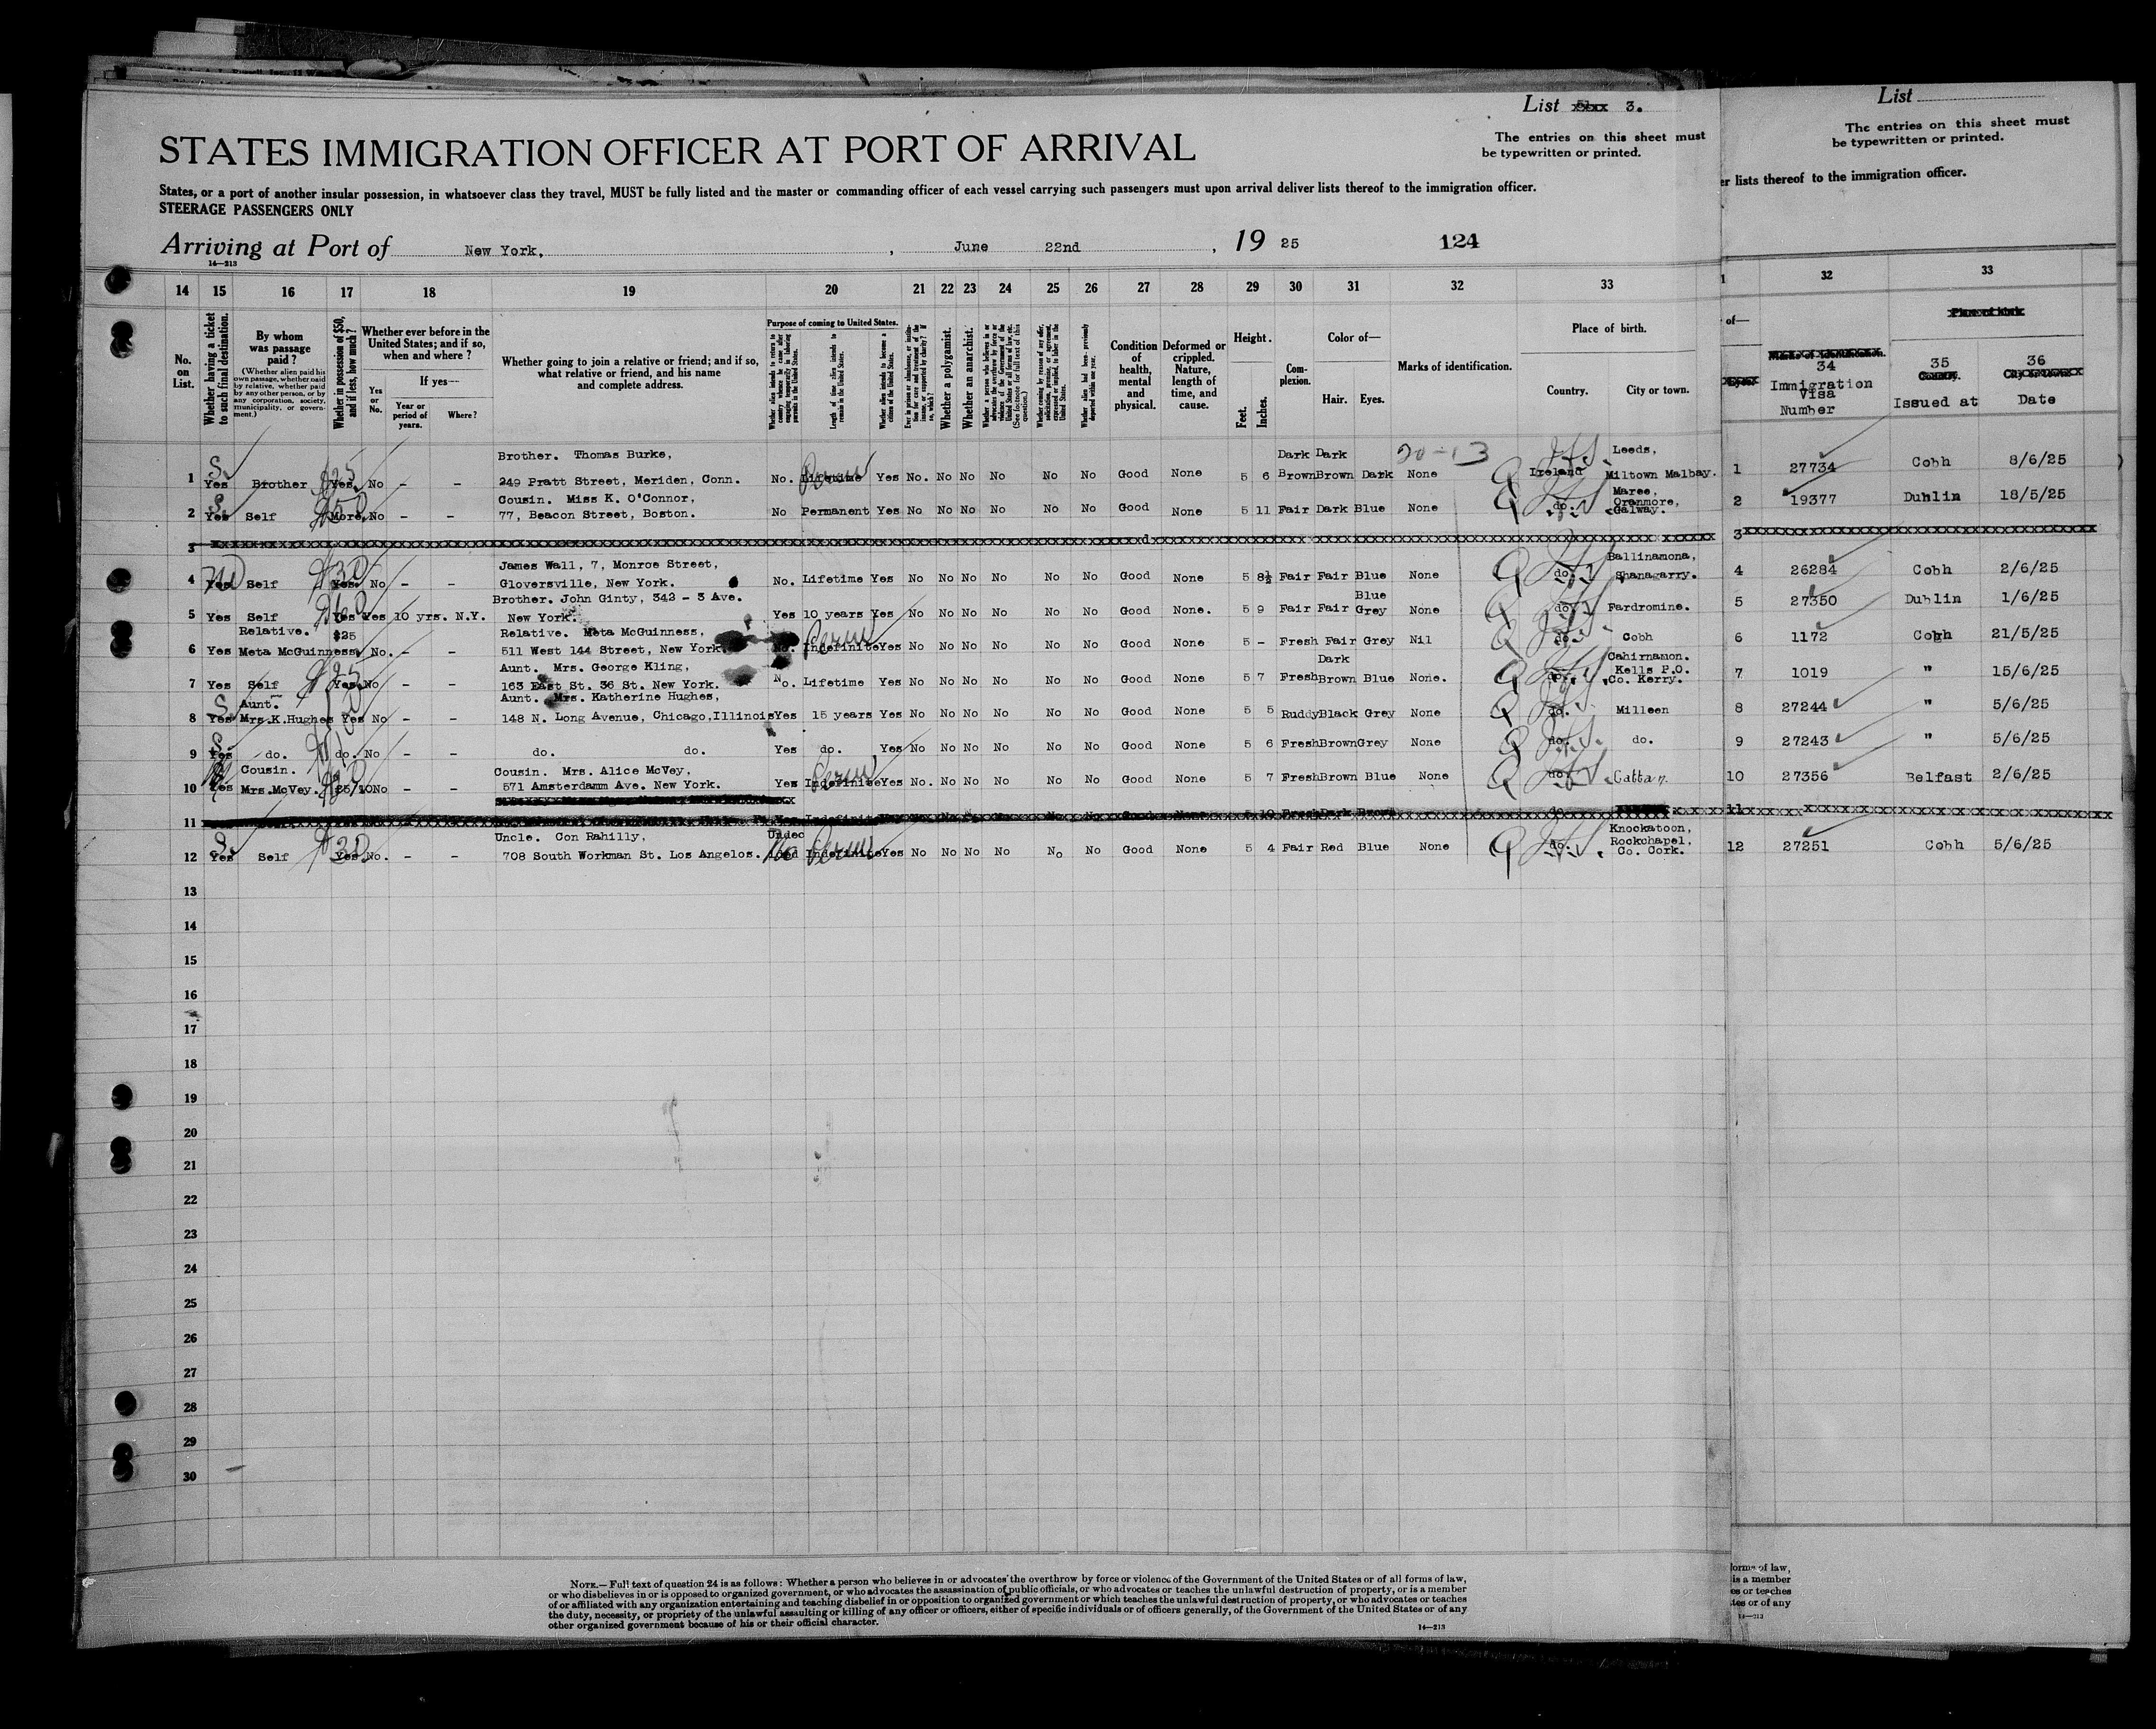 List 3.
STATES IMMIGRATION OFFICER AT PORT OF ARRIVAL
The entries on this sheet must
be typewritten or printed.
States, or a port of another insular possession, in whatsoever class they travel, MUST be fully listed and the master or commanding officer of each vessel carrying such passengers must upon arrival deliver lists thereof to the immigration officer.
STEERAGE PASSENGERS ONLY
Arriving at Port of New York, , June 22nd , 19 25 124
14—213
14 15 16 17 18 19 20 21 22 23 24 25 26 27 28 29 30 31 32 33
No. on List.
Whether having a ticket to such final destination.
By whom was passage paid?
(Whether alien paid his own passage, whether paid by relative, whether paid by any other person, or by any corporation, society, municipality, or government.)
Whether in possession of $50, and if less, how much?
Whether ever before in the United States; and if so, when and where?
Yes or No.
If yes—
Year or period of years.
Where?
Whether going to join a relative or friend; and if so, what relative or friend, and his name and complete address.
Purpose of coming to United States.
Length of time alien intends to remain in the United States.
Whether alien intends to become a citizen of the United States.
Whether a polygamist.
Whether an anarchist.
Condition of health, mental and physical.
Deformed or crippled. Nature, length of time, and cause.
Height.
Feet. Inches.
Complexion.
Color of—
Hair. Eyes.
Marks of identification.
Place of birth.
Country. City or town.
1 Yes Brother Yes. No - - Brother. Thomas Burke,
249 Pratt Street, Meriden, Conn. No. Lifetime Yes No. No No No No No Good None 5 6 Dark Brown Dark Brown Dark None Ireland Leeds, Miltown Malbay.
20-13
2 Yes Self More. No - - Cousin. Miss K. O'Connor,
77, Beacon Street, Boston. No Permanent Yes No No No No No No Good None 5 11 Fair Dark Blue None do. Maree, Oranmore, Galway.
3
4 Yes Self Yes. No - - James Wall, 7, Monroe Street,
Gloversville, New York. No. Lifetime Yes No No No No No No Good None 5 8½ Fair Fair Blue None do. Ballinamona, Shanagarry.
5 Yes Self Yes Yes 10 yrs. N.Y. Brother. John Ginty, 342 - 3 Ave.
New York. Yes 10 years Yes No No No No No No Good None. 5 9 Fair Fair Blue Grey None do. Fardromine.
6 Yes Relative. Meta McGuinness, $25 No. - - Relative. Meta McGuinness,
511 West 144 Street, New York No. Indefinite Perm Yes No No No No No No Good None 5 - Fresh Fair Grey Nil do. Cobh
7 Yes Self Yes. No - - Aunt. Mrs. George Kling,
163 East St. 36 St. New York. No. Lifetime Yes No No No No No No Good None 5 7 Fresh Dark Brown Blue None. do. Cahirnamon. Kells P.O. Co. Kerry.
8 Yes Aunt. Mrs.K.Hughes Yes No - - Aunt. Mrs. Katherine Hughes,
148 N. Long Avenue, Chicago,Illinois Yes 15 years Yes No No No No No No Good None 5 5 Ruddy Black Grey None do. Milleen
9 Yes do. do. No - - do. do. Yes do. Yes No No No No No No Good None 5 6 Fresh Brown Grey None do. do.
10 Yes Cousin. Mrs.McVey. No - - Cousin. Mrs. Alice McVey,
571 Amsterdamm Ave. New York. Yes Indefinite Perm Yes No. No No No No No Good None 5 7 Fresh Brown Blue None do.
11
12 Yes Self Yes No. - - Uncle. Con Rahilly,
708 South Workman St. Los Angelos. No Indefinite Perm Yes No No No No No No Good None 5 4 Fair Red Blue None do. Knockatoon, Rockchapel, Co. Cork.
13
14
15
16
17
18
19
20
21
22
23
24
25
26
27
28
29
30
NOTE.—Full text of question 24 is as follows: Whether a person who believes in or advocates the overthrow by force or violence of the Government of the United States or of all forms of law,
or who disbelieves in or is opposed to organized government, or who advocates the assassination of public officials, or who advocates or teaches the unlawful destruction of property, or is a member
of or affiliated with any organization entertaining and teaching disbelief in or opposition to organized government or which teaches the unlawful destruction of property, or who advocates or teaches
the duty, necessity, or propriety of the unlawful assaulting or killing of any officer or officers, either of specific individuals or of officers generally, of the Government of the United States or of any
other organized government because of his or their official character.
14—213
List
The entries on this sheet must
be typewritten or printed.
er lists thereof to the immigration officer.
32 33
of—
34 Immigration Visa Number
35 Issued at
36 Date
1 27734 Cobh 8/6/25
2 19377 Dublin 18/5/25
3
4 26284 Cobh 2/6/25
5 27350 Dublin 1/6/25
6 1172 Cobh 21/5/25
7 1019 " 15/6/25
8 27244 " 5/6/25
9 27243 " 5/6/25
10 27356 Belfast 2/6/25
11
12 27251 Cobh 5/6/25
forms of law,
is a member
es or teaches
tes or of any
14—213